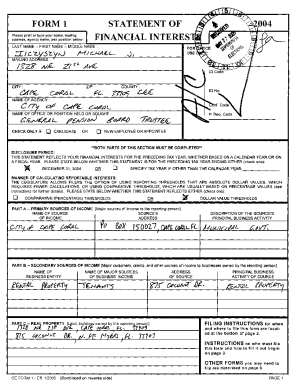 FORM 1 STATEMENT OF 2004
FINANCIAL INTERESTS
Please print or type your name, mailing
address, agency name, and position below:
LAST NAME - FIRST NAME - MIDDLE NAME
MICHAEL J.
MAILING ADDRESS
1528 NE 21ST AVE
CITY COUNTY
CAPE CORAL FL 33909 LEE
NAME OF AGENCY
CITY OF CAPE CORAL
NAME OF OFFICE OR POSITION HELD OR SOUGHT
GENERAL PENSION BOARD TRUSTEE
CHECK ONLY IF CANDIDATE OR NEW EMPLOYEE OR APPOINTEE
ID Code
ID No.
Conf. Code
P. Req. Code
**BOTH PARTS OF THIS SECTION MUST BE COMPLETED**
DISCLOSURE PERIOD:
THIS STATEMENT REFLECTS YOUR FINANCIAL INTERESTS FOR THE PRECEDING TAX YEAR, WHETHER BASED ON A CALENDAR YEAR OR ON
A FISCAL YEAR. PLEASE STATE BELOW WHETHER THIS STATEMENT IS FOR THE PRECEDING TAX YEAR ENDING EITHER (check one):
DECEMBER 31, 2004 OR SPECIFY TAX YEAR IF OTHER THAN THE CALENDAR YEAR:
MANNER OF CALCULATING REPORTABLE INTERESTS:
THE LEGISLATURE ALLOWS FILERS THE OPTION OF USING REPORTING THRESHOLDS THAT ARE ABSOLUTE DOLLAR VALUES, WHICH
REQUIRES FEWER CALCULATIONS, OR USING COMPARATIVE THRESHOLDS, WHICH ARE USUALLY BASED ON PERCENTAGE VALUES (see
instructions for further details). PLEASE STATE BELOW WHETHER THIS STATEMENT REFLECTS EITHER (check one):
COMPARATIVE (PERCENTAGE) THRESHOLDS OR DOLLAR VALUE THRESHOLDS
PART A - PRIMARY SOURCES OF INCOME [Major sources of income to the reporting person]
NAME OF SOURCE OF INCOME SOURCE'S ADDRESS DESCRIPTION OF THE SOURCE'S PRINCIPAL BUSINESS ACTIVITY
CITY OF CAPE CORAL PO BOX 150027, CAPE CORAL, FL MUNICIPAL GOVT.
PART B - SECONDARY SOURCES OF INCOME [Major customers, clients, and other sources of income to businesses owned by the reporting person]
NAME OF BUSINESS ENTITY NAME OF MAJOR SOURCES OF BUSINESS' INCOME ADDRESS OF SOURCE PRINCIPAL BUSINESS ACTIVITY OF SOURCE
RENTAL PROPERTY TENANTS 875 COCONUT DR. RENTAL PROPERTY
PART C - REAL PROPERTY [Land, buildings owned by the reporting person]
CAPE CORAL, FL. 33909
875 COCONUT DR. N. FT MYERS, FL. 33903
FILING INSTRUCTIONS for when
and where to file this form are located
at the bottom of page 2.
INSTRUCTIONS on who must file
this form and how to fill it out begin
on page 3.
OTHER FORMS you may need to
file are described on page 6.
CE FORM 1 - Eff. 1/2005 (Continued on reverse side) PAGE 1